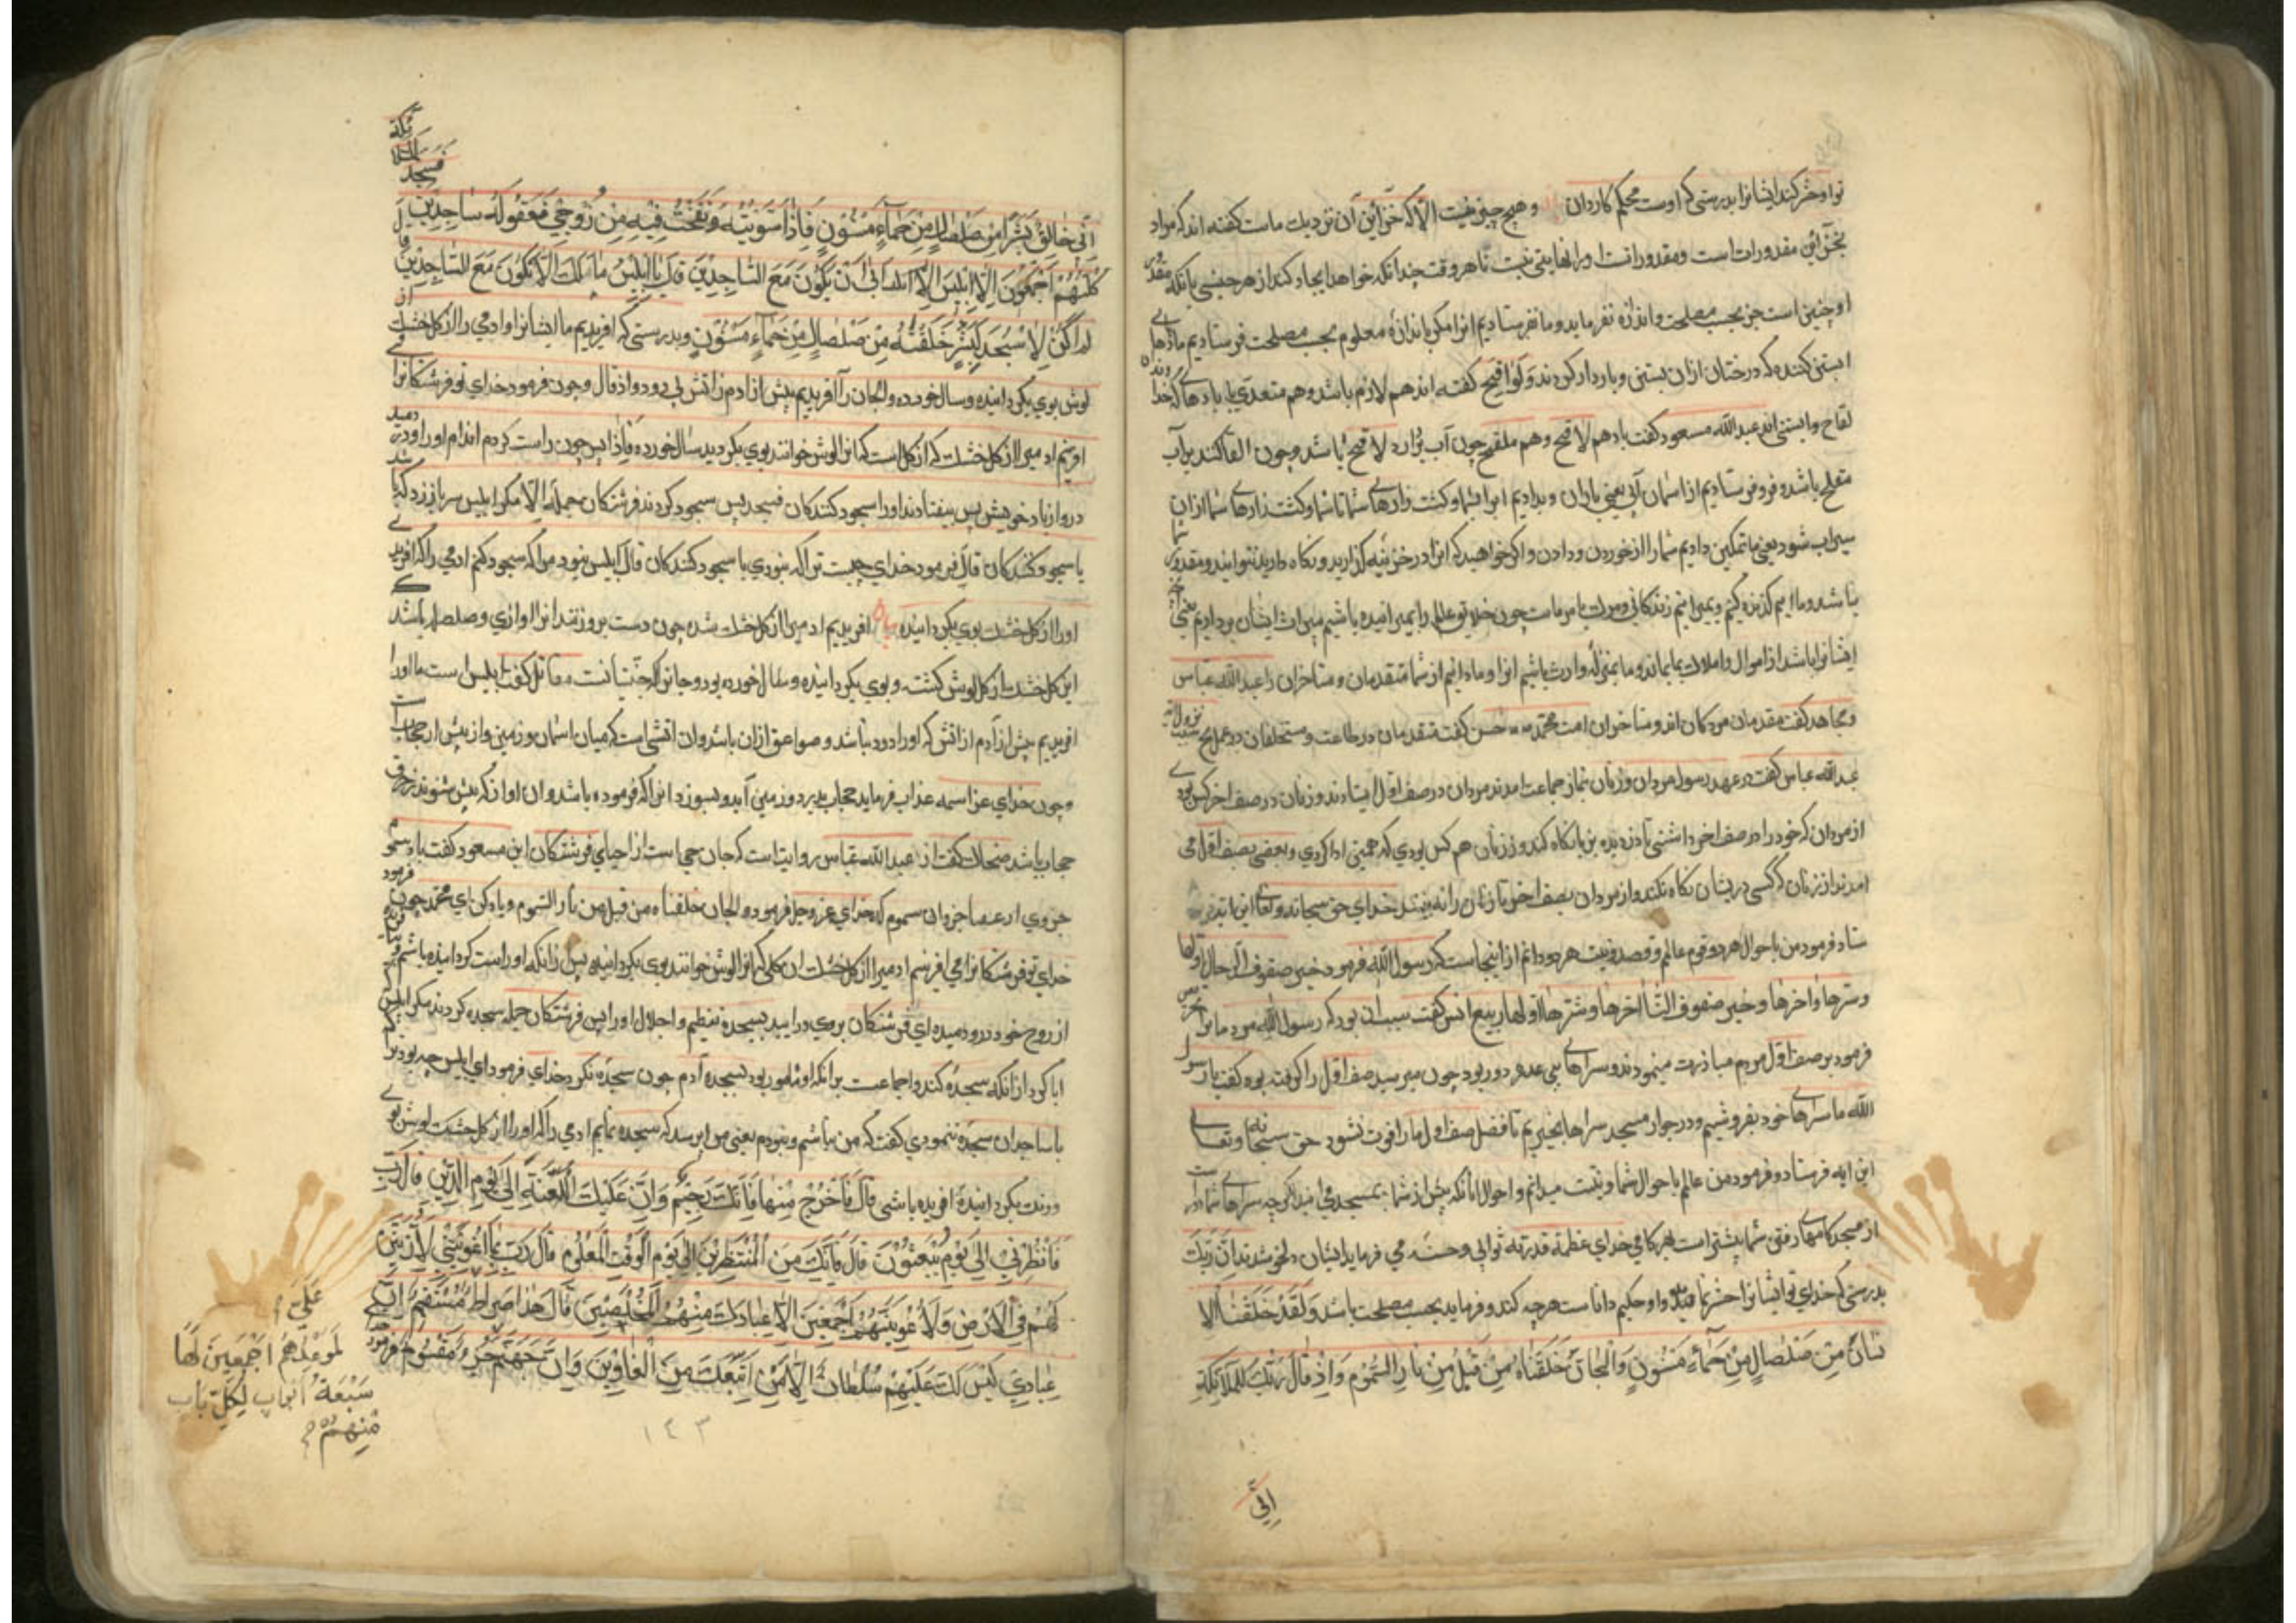 تو او حشر کند ایشانرا بدرستی که اوست محکم کاردان و هیچ چیزی نیست الا که خزائن آن نزدیك ماست کفته اند که مراد
بخزائن مقدورات است و مقدورات او را نهایتی نیست تا هر وقت چندانکه خواهد ایجاد کند از هر جنسی بآنکه مقدر
او چنین است جز بحسب مصلحت و اندازه نفرماید و ما نفرستادیم انرا مکر باندازهٔ معلوم بحسب مصلحت فرستادیم مادها
ابستنی کننده که درختان ازان بستنی و باردار کردند و لواقح کفته اند هم لازم باشد و هم متعدی یا بادهاء که خدا
لقاح و ابستنی اند عبدالله مسعود کفت باد هم لاقح و هم ملقح چون آب بردارد لاقح باشد و چون القا کند بر آب
ملقح باشد و فرو فرستادیم از اسمان آبی یعنی باران و بدادیم ابرا بشما و کشت زارهاء شما تا شما و کشت زارهاء شما ازان
سیراب شود یعنی ما تمکین دادیم شما را از خوردن و دادن و اکر خواهید که انرا در خزینه کذارید و نکاه دارید نتوانید و مقدور شما
باشد و ما ایم که زنده کنیم و بمیرانیم زندکانی و مرك بامر ماست چون خلایق عالم را بمیرانیده باشیم میراث ایشان برداریم
ایشانرا باشد از اموال و املاك بما بماند و ما بمنزلهٔ وارث باشیم انرا و ما دانیم از شما متقدمان و متاخران را عبدالله عباس
و مجاهد کفت متقدمان مردکان اند و متاخران امت محمد حسن کفت متقدمان در طاعت و متخلفان در عمل
عبدالله عباس کفت در عهد رسول مردان و زنان بنماز جماعت امدند مردان در صف اول ایستادند و زنان در صف اخر کس بودی
از مردان که خود را در صف اخر داشتی تا دزدیده بزنان نکاه کند و از زنان هم کس بودی که همچنین ادا کردی و بعضی بصف اول می
امدند از زنان که کسی در یشان نکاه نکند و از مردان بصف اخر تا زنان را نه بینند خدای حق سبحانه و تعالی این ایه
ستاد فرمود من باحوال هر دو قوم عالم و قصد و نیت هر دو دانم از اینجاست که رسول الله فرمود خیر صفوف الرجال اولها
و شرها واخرها و خیر صفوف النسا اخرها و شرها اولها ربیع انس کفت سبب ان بود که رسول الله مردمانرا
فرمود بر صف اول مردم مبادرت مینمودند و سراهاء بنی عذره دور بود چون میرسید صف اول را کرفته بوده کفت یا رسول
الله ما سراهاء خود بفروشیم و در جوار مسجد سراها بخیریم تا فضل صف اول ما را فوت نشود حق سبحانه و تعالی
این ایه فرستاد و فرمود من عالم باحوال شما و بنیت میدانم و احوال انانکه پیش از شما بمسجد می ایند اکرچه سراهاء شما دور
از مسجد کامهاء رفتن شما بیشتر است بهر کامی خدای عظمه قدرته ثوابی و حسنه می فرماید ایشان دلخوش شدند ان ربك
بدرستی که خدای تو ایشانرا حشر نماید و او حکیم داناست هرچه کند و فرماید بحسب مصلحت باشد وَلَقَدْ خَلَقْنَا الا
نسانَ مِن صَلْصَالٍ مِنْ حَمَاءٍ مَسْنُونٍ وَالْجَانَّ خَلَقْنَاهُ مِنْ قَبْلُ مِنْ نَارِ السَّمُومِ وَاِذْ قَالَ رَبُّكَ لِلْمَلَائِكَةِ
اِنّی
اِنّی خَالِقٌ بَشَرًا مِنْ صَلْصَالٍ مِنْ حَمَاءٍ مَسْنُونٍ فَاِذَا سَوَّیْتُهُ وَنَفَخْتُ فِیهِ مِنْ رُوحِی فَقَعُوا لَهُ سَاجِدِینَ فسجد الملائکة
کُلُّهُمْ اَجْمَعُونَ اِلَّا اِبْلِیسَ اَبَی اَنْ یَکُونَ مَعَ السَّاجِدِینَ قَالَ یَا اِبْلِیسُ مَا لَكَ اَلَّا تَکُونَ مَعَ السَّاجِدِینَ قال
لَمْ اَکُنْ لِاَسْجُدَ لِبَشَرٍ خَلَقْتَهُ مِنْ صَلْصَالٍ مِنْ حَمَاءٍ مَسْنُونٍ و بدرستی که افریدیم ما ایشانرا و ادمی را از کل خشك
لوش بوی بکردانیده و سال خورده و الجان را آفریدیم پیش از ادم ز اتش بی دود و اذ قال و چون فرمود خدای تو فرشتکانرا
افرینم ادمیرا از کل خشك که از کل است که انرا لوش خوانند بوی بکردیده سال خورده فاذا پس چون راست کردم اندام او را و در دمید
درو از باد خویش پس بیفتادند او را سجود کنندکان فسجد پس سجود کردند فرشتکان جمله الا مکر ابلیس سر باز زد که باشد
با سجود کنندکان قال فرمود خدای چیست ترا که نبودی با سجود کنندکان قال ابلیس نبود مرا که سجود کنم ادمی را که افریدی
او را از کل خشك بوی بکردانیده بیان افریدیم ادمیرا از کل خشك شده چون دست برو زنند انرا اوازی و صلصله باشد
این کل خشك از کل لوش کشته و بوی بکردانیده و سال خورده بود و جانرا که جنیانست مقاتل کفت ابلیس است ما او را
افریدیم پیش از آدم از اتش که او را دود نباشد و صواعق ازان باشد و ان اتشی است که میان اسمان و زمین و از پیش
و چون خدای عز اسمه عذاب فرماید حجاب بدرد و زمین آید و بسوزد انرا که فرموده باشد و ان اواز که بیش شنوند
حجاب باشد ضحاك کفت از عبدالله عباس روایت است که جان حی است از احیاء فرشتکان ابن مسعود کفت باد سموم
جزوی از هفتاد جزو ان سموم که خدای عز و جل فرمود و الجان خلقناه من قبل من نار السموم و یاد کن ای محمد چون فرمود
خدای تو فرشتکانرا می افرینم ادمیرا از کل خشك ان کلی که انرا لوش خوانند بوی بکردانیده پس زانکه او را راست کردانیده باشم
از روح خود درو دمیده ای فرشتکان بروی در ایید بسجدهٔ تعظیم و اجلال او را پس فرشتکان جمله سجده کردند مکر ابلیس
ابا کرد از انکه سجده کند و اجماعست برانکه او مامور بود بسجده آدم چون سجده نکرد خدای فرمود ای ابلیس چه بود ترا
با ساجدان سجده ننمودی کفت که من نباشم و نبودم یعنی مرا نرسد که سجده نمایم ادمی را که او را از کل خشك لوش بوی
و رنك بکردانیده افریده باشی قَالَ فَاخْرُجْ مِنْهَا فَاِنَّكَ رَجِیمٌ وَاِنَّ عَلَیْكَ اللَّعْنَةَ اِلَی یَوْمِ الدِّینِ قَالَ رَبِّ
فَاَنْظِرْنِی اِلَی یَوْمِ یُبْعَثُونَ قَالَ فَاِنَّكَ مِنَ الْمُنْتَظَرِینَ اِلَی یَوْمِ الْوَقْتِ الْمَعْلُومِ قَالَ رَبِّ بِمَا اَغْوَیْتَنِی لَاُزَیِّنَنَّ
لَهُمْ فِی الْاَرْضِ وَلَاُغْوِیَنَّهُمْ اَجْمَعِینَ اِلَّا عِبَادَكَ مِنْهُمُ الْمُخْلَصِینَ قَالَ هَذَا صِرَاطٌ مُسْتَقِیمٌ اِنَّ
عِبَادِی لَیْسَ لَكَ عَلَیْهِمْ سُلْطَانٌ اِلَّا مَنِ اتَّبَعَكَ مِنَ الْغَاوِینَ وَاِنَّ جَهَنَّمَ جزء مقسوم
عَلَیَّ
لَمَوْعِدُهُمْ اَجْمَعِینَ لَهَا
سَبْعَةُ اَبْوَابٍ لِکُلِّ بَابٍ
مِنْهُمْ
١٤٣